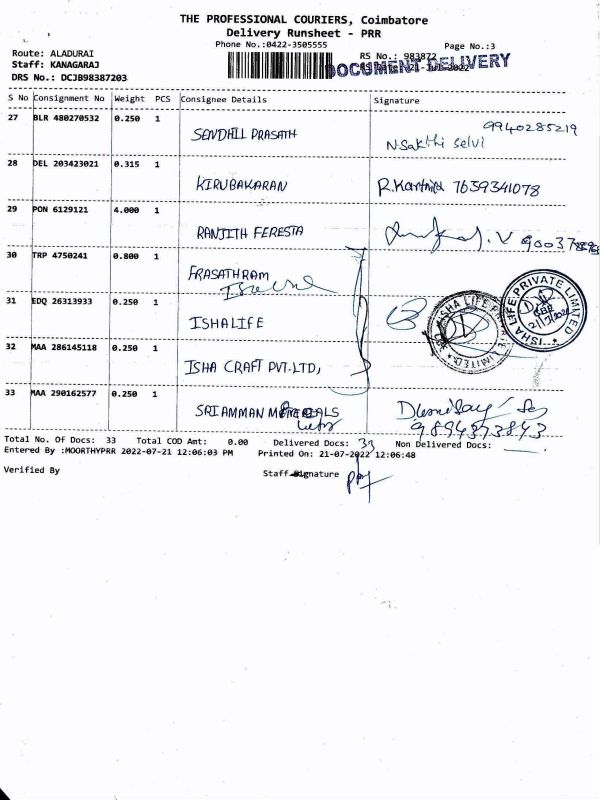 THE PROFESSIONAL COURIERS, Coimbatore
Delivery Runsheet - PRR
Phone No.:0422-3505555
Page No.:3
Route: ALADURAI
RS No.: 983872
Staff: KANAGARAJ
DOCUMENT DELIVERY
21-Jul-2022
DRS No.: DCJB98387203
S No Consignment No Weight PCS Consignee Details Signature
27 BLR 480270532 0.250 1 SENDHIL PRASATH N.Sakthi Selvi 9940285219
28 DEL 203423021 0.315 1 KIRUBAKARAN 7639341078
29 PON 6129121 4.000 1 RANJITH FERESTA
30 TRP 4750241 0.800 1 PRASATHRAM
31 EDQ 26313933 0.250 1 ISHALIFE
ISHA LIFE PRIVATE LIMITED
ISHA LIFE PRIVATE LIMITED
32 MAA 286145118 0.250 1 ISHA CRAFT PVT.LTD,
33 MAA 290162577 0.250 1 SRI AMMAN METERIALS
9894373843
Total No. Of Docs: 33 Total COD Amt: 0.00 Delivered Docs: 33 Non Delivered Docs:
Entered By :MOORTHYPRR 2022-07-21 12:06:03 PM Printed On: 21-07-2022 12:06:48
Verified By Staff Signature